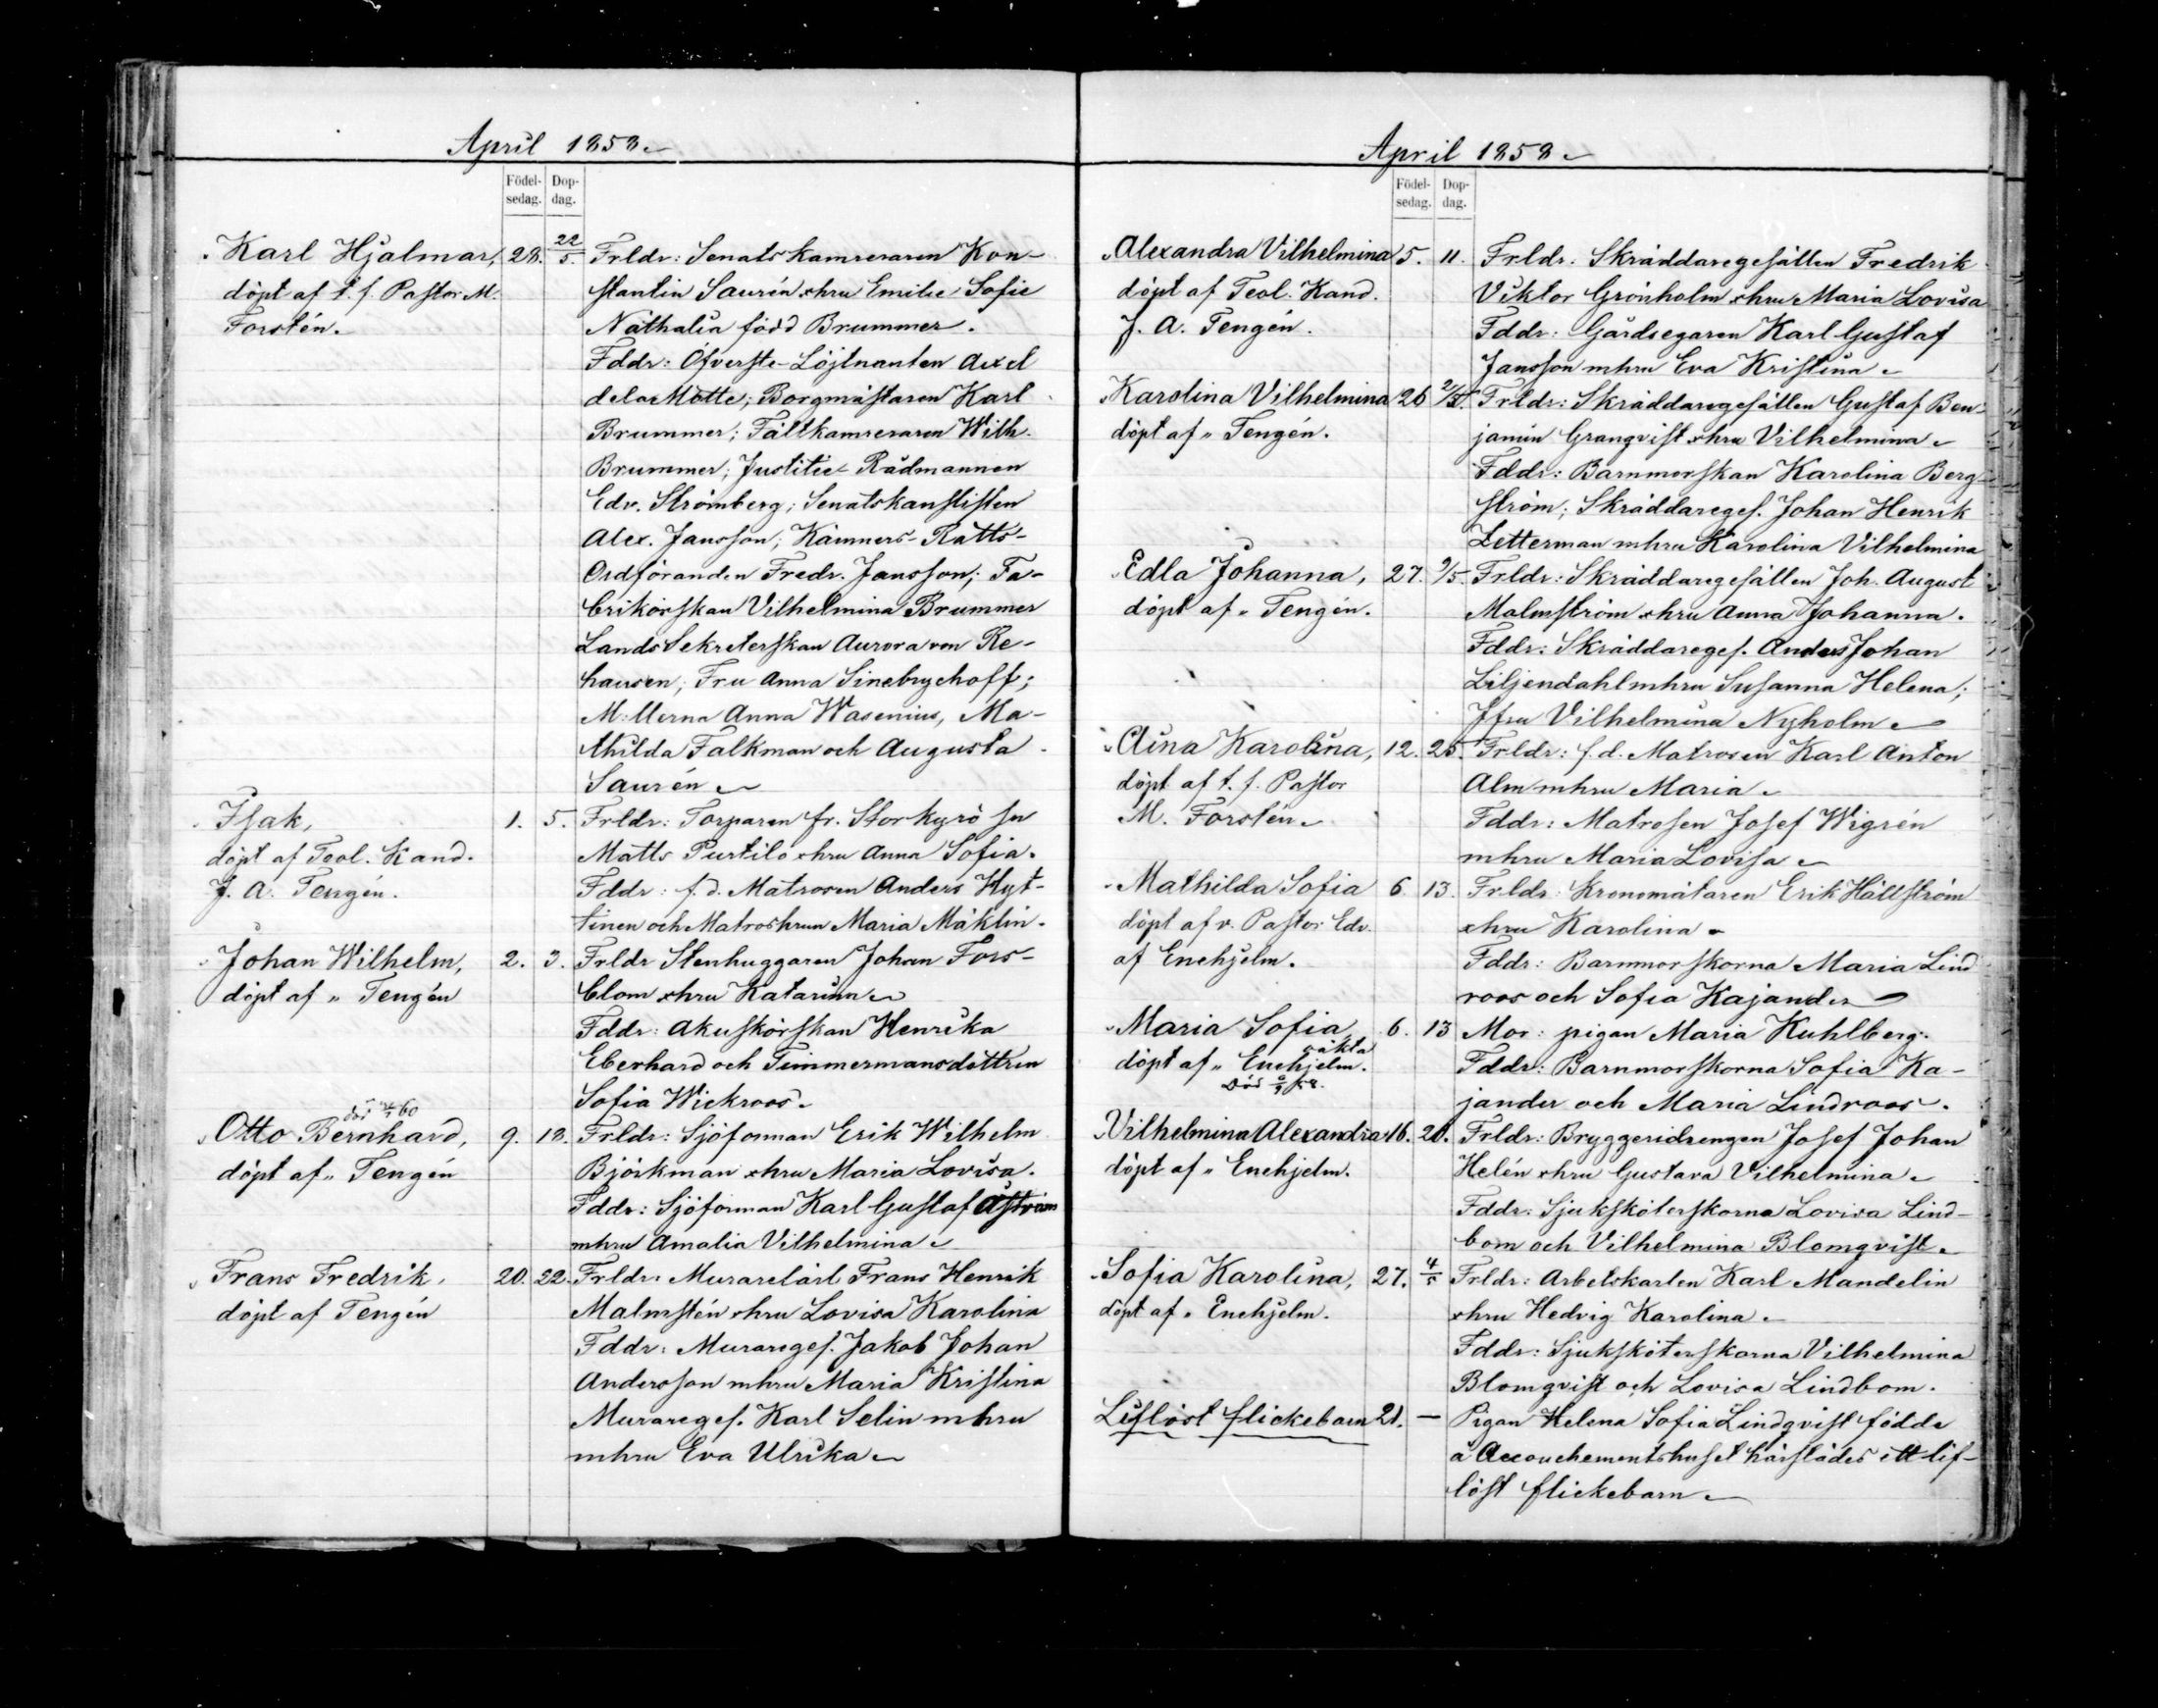 April 1858
Födel-
sedag.
Dop-
dag.
Karl Hjalmar, 28. 22/5. Frldr: Senatskamreraren Kon-
döpt af t. f. Pastor M. stantin Saurén o hru Emilie Sofie
Forstén. Nathalia född Brummer.
Fddr: Öfverste-Löjtnanten Axel
de la Motte; Borgmästaren Karl
Brummer; Fältkamreraren Wilh.
Brummer; Justitie-Rådmannen
Edv. Strömberg; Senatskanslisten
Alex. Jansson; Kämners-Rätts-
Ordföranden Fredr. Jansson; Fa-
brikörskan Vilhelmina Brummer
Lands Sekreterskan Aurora von Re-
hausen; Fru Anna Sinebrychoff;
M:llerna Anna Wasenius, Ma-
thilda Falkman och Augusta
Saurén
Isak, 1. 5. Frldr: Torparen fr. Storkyrö sn
döpt af Teol. Kand. Matts Purtilo o hru Anna Sofia.
J. A. Tengén. Fddr: f. d. Matrosen Anders Hyt-
tinen och Matroshrun Maria Mäklin.
Johan Wilhelm, 2. 3. Frldr Stenhuggaren Johan Fors-
döpt af " Tengén blom o hru Katarina
Fddr: Akuskörskan Henrika
Eberhard och Timmermansdottren
Sofia Wickroos.
död 60
Otto Bernhard, 9. 18. Frldr: Sjöforman Erik Wilhelm
döpt af " Tengén Björkman o hru Maria Lovisa.
Fddr: Sjöforman Karl Gustaf Åström
mhru Amalia Vilhelmina
Frans Fredrik, 20. 22. Frldr: Murarelärl Frans Henrik
döpt af Tengén Malmstén o hru Lovisa Karolina
Fddr: Murareges. Jakob Johan
Andersson mhru Maria Kristina
Murareges. Karl Selin mhru
mhru Eva Ulrika
April 1858
Födel-
sedag.
Dop-
dag.
Alexandra Vilhelmina 5. 11. Frldr. Skräddaregesällen Fredrik
döpt af Teol. Kand. Viktor Grönholm o hru Maria Lovisa
J. A. Tengén. Fddr: Gårdsegaren Karl Gustaf
Jansson mhru Eva Kristina
Karolina Vilhelmina 26 2/5. Frldr: Skräddaregesällen Gustaf Ben-
döpt af " Tengén. jamin Granqvist o hru Vilhelmina
Fddr: Barnmorskan Karolina Berg-
ström; Skräddareges. Johan Henrik
Zetterman mhru Karolina Vilhelmina
Edla Johanna, 27. 9/5. Frldr: Skräddaregesällen Joh. August
döpt af " Tengén. Malmström o hru Anna Johanna.
Fddr: Skräddareges. Anders Johan
Liljendahl mhru Susanna Helena;
Jfru Vilhelmina Nyholm
Aina Karolina, 12. 25. Frldr: f. d. Matrosen Karl Anton
döpt af t. f. Pastor Alm mhru Maria
M. Forstén. Fddr: Matrosen Josef Wigrén
mhru Maria Lovisa
Mathilda Sofia 6 13. Frldr: Kronomätaren Erik Hällström
döpt af v. Pastor Edv. o hru Karolina
af Enehjelm. Fddr: Barnmorskorna Maria Lind
roos och Sofia Kajander
Maria Sofia, 6. 13 Mor: pigan Maria Kuhlberg.
oäkta
döpt af " Enehjelm. Fddr: Barnmorskorna Sofia Ka-
Död 58. jander och Maria Lindroos.
Vilhelmina Alexandra 16. 20. Frldr: Bryggeridrengen Josef Johan
döpt af " Enehjelm. Helén o hru Gustava Vilhelmina
Fddr. Sjuksköterskorna Lovisa Lind-
bom och Vilhelmina Blomqvist
Sofia Karolina, 27. 4/5 Frldr: Arbetskarlen Karl Mandelin
döpt af " Enehjelm. o hru Hedvig Karolina
Fddr: Sjuksköterskorna Vilhelmina
Blomqvist och Lovisa Lindbom.
Liflöst flickebarn 21. — Pigan Helena Sofia Lindqvist födde
å Accouchementshuset härstädes ett lif-
löst flickebarn